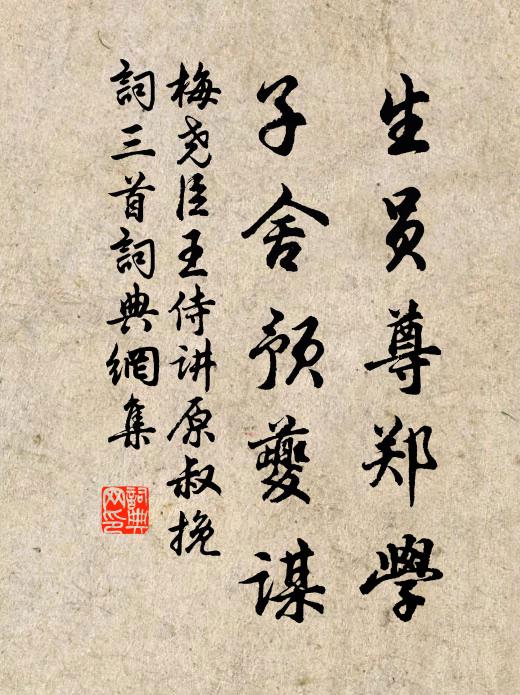 生员尊郑学
子舍预夔谋
梅尧臣王侍讲原叔挽
詞三首詞典網集
詞典网印